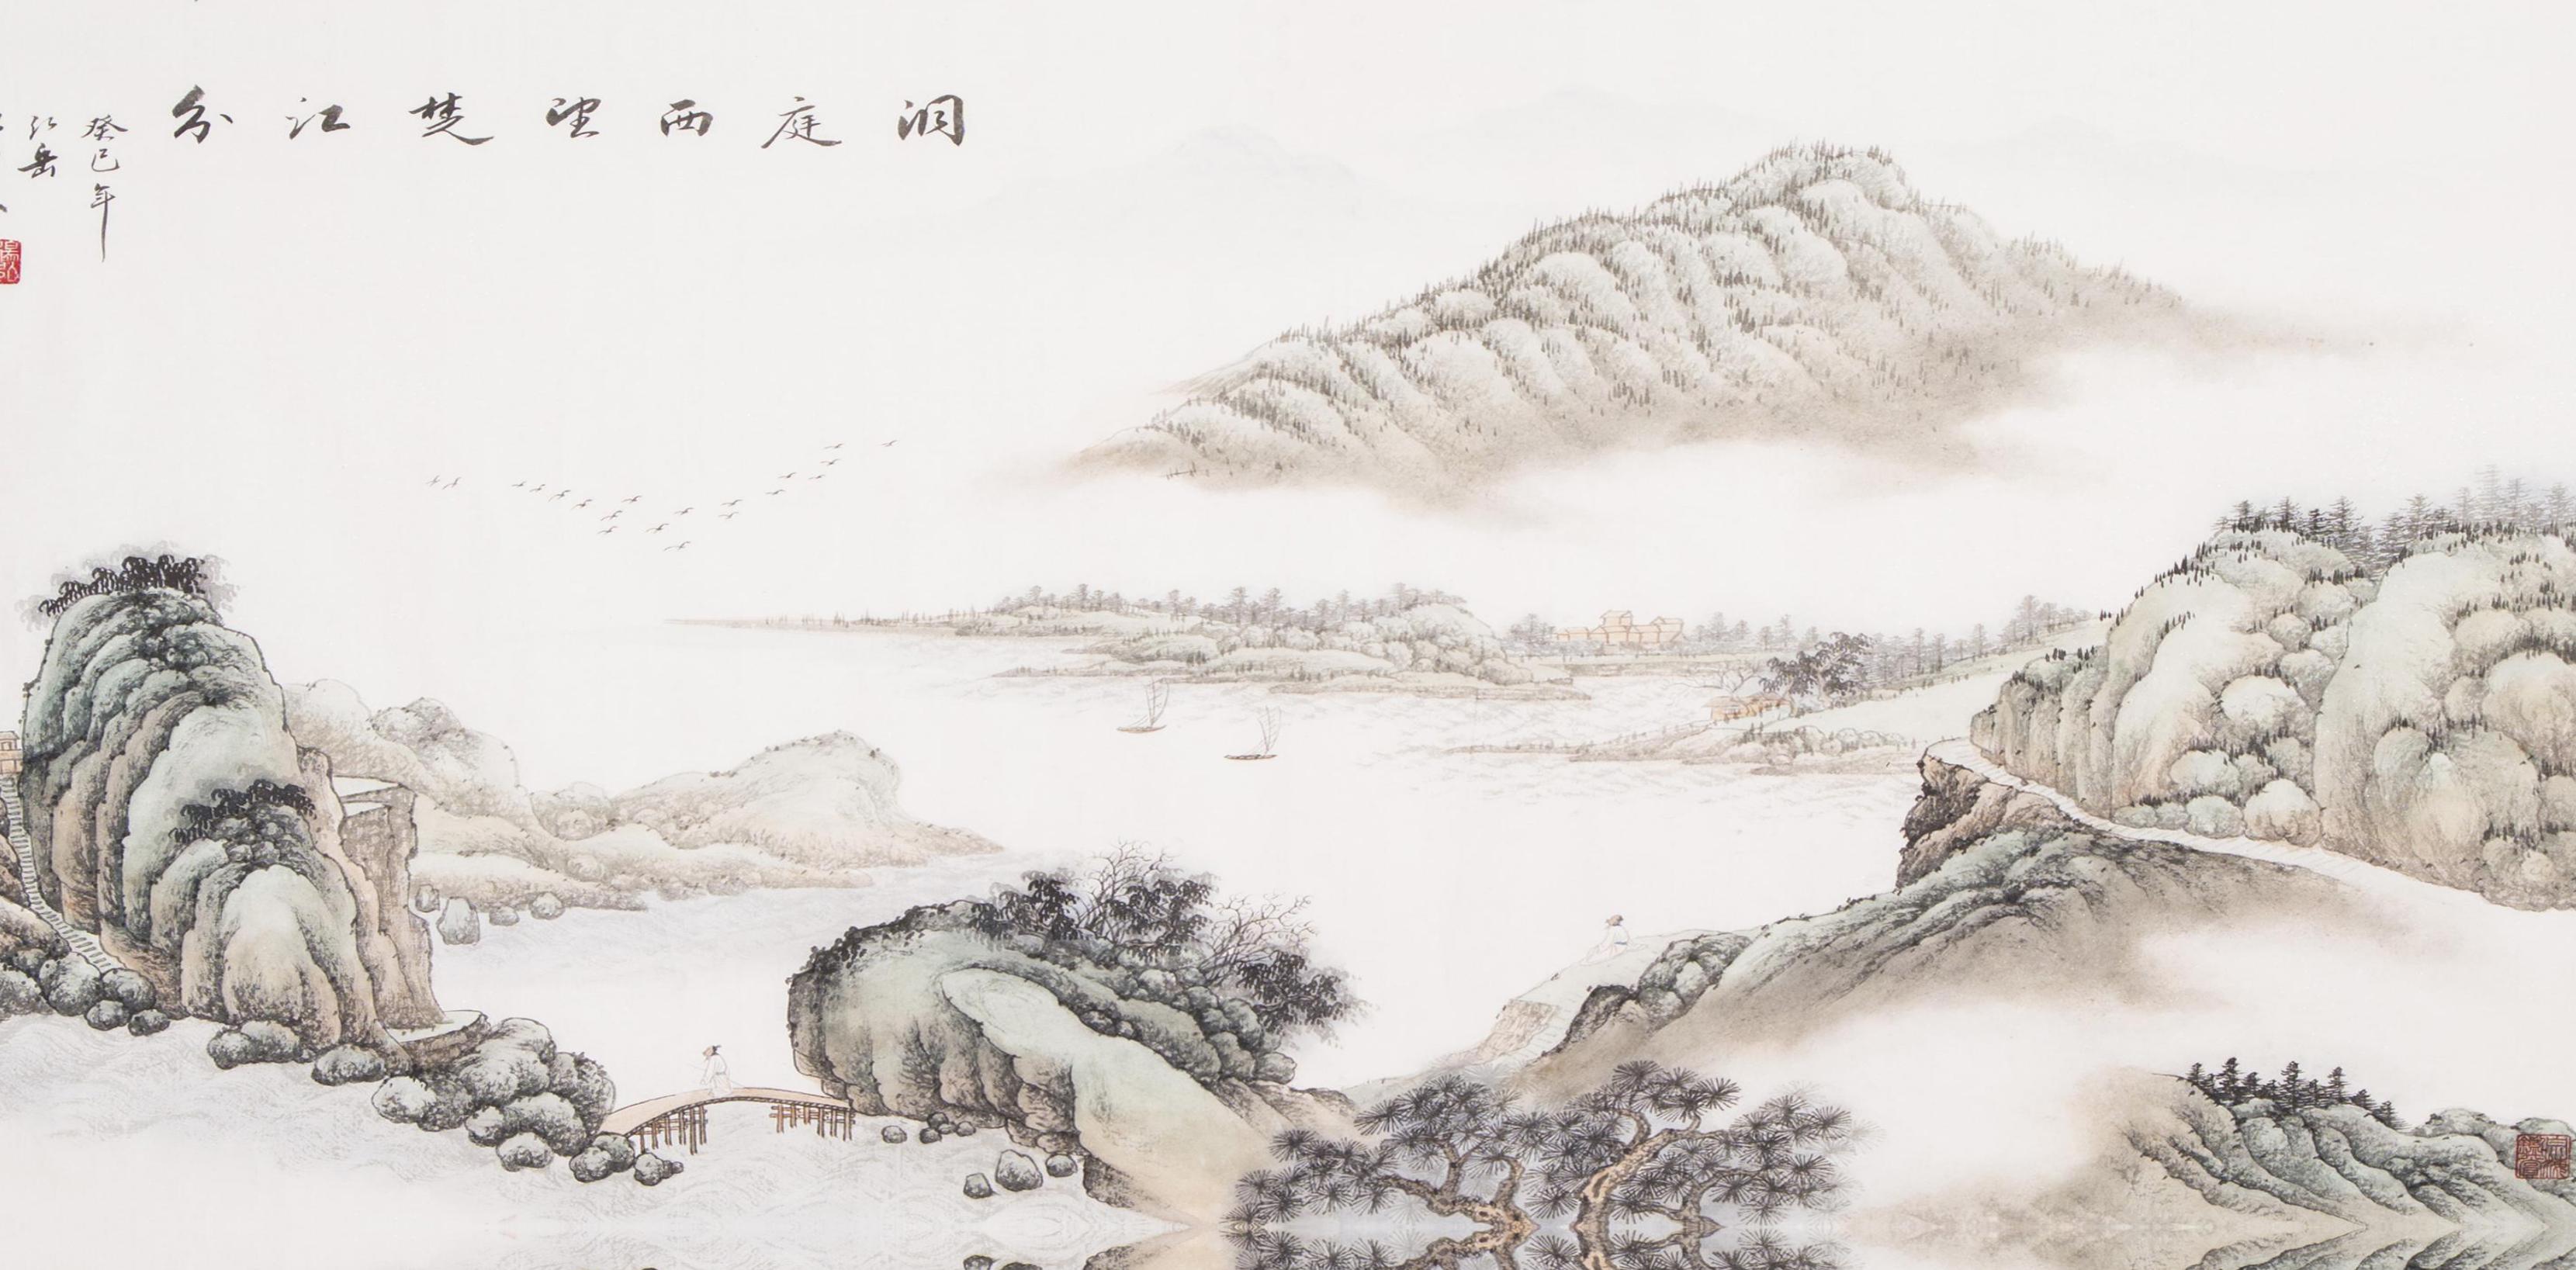 洞庭西望楚江分
癸巳年
弘岳